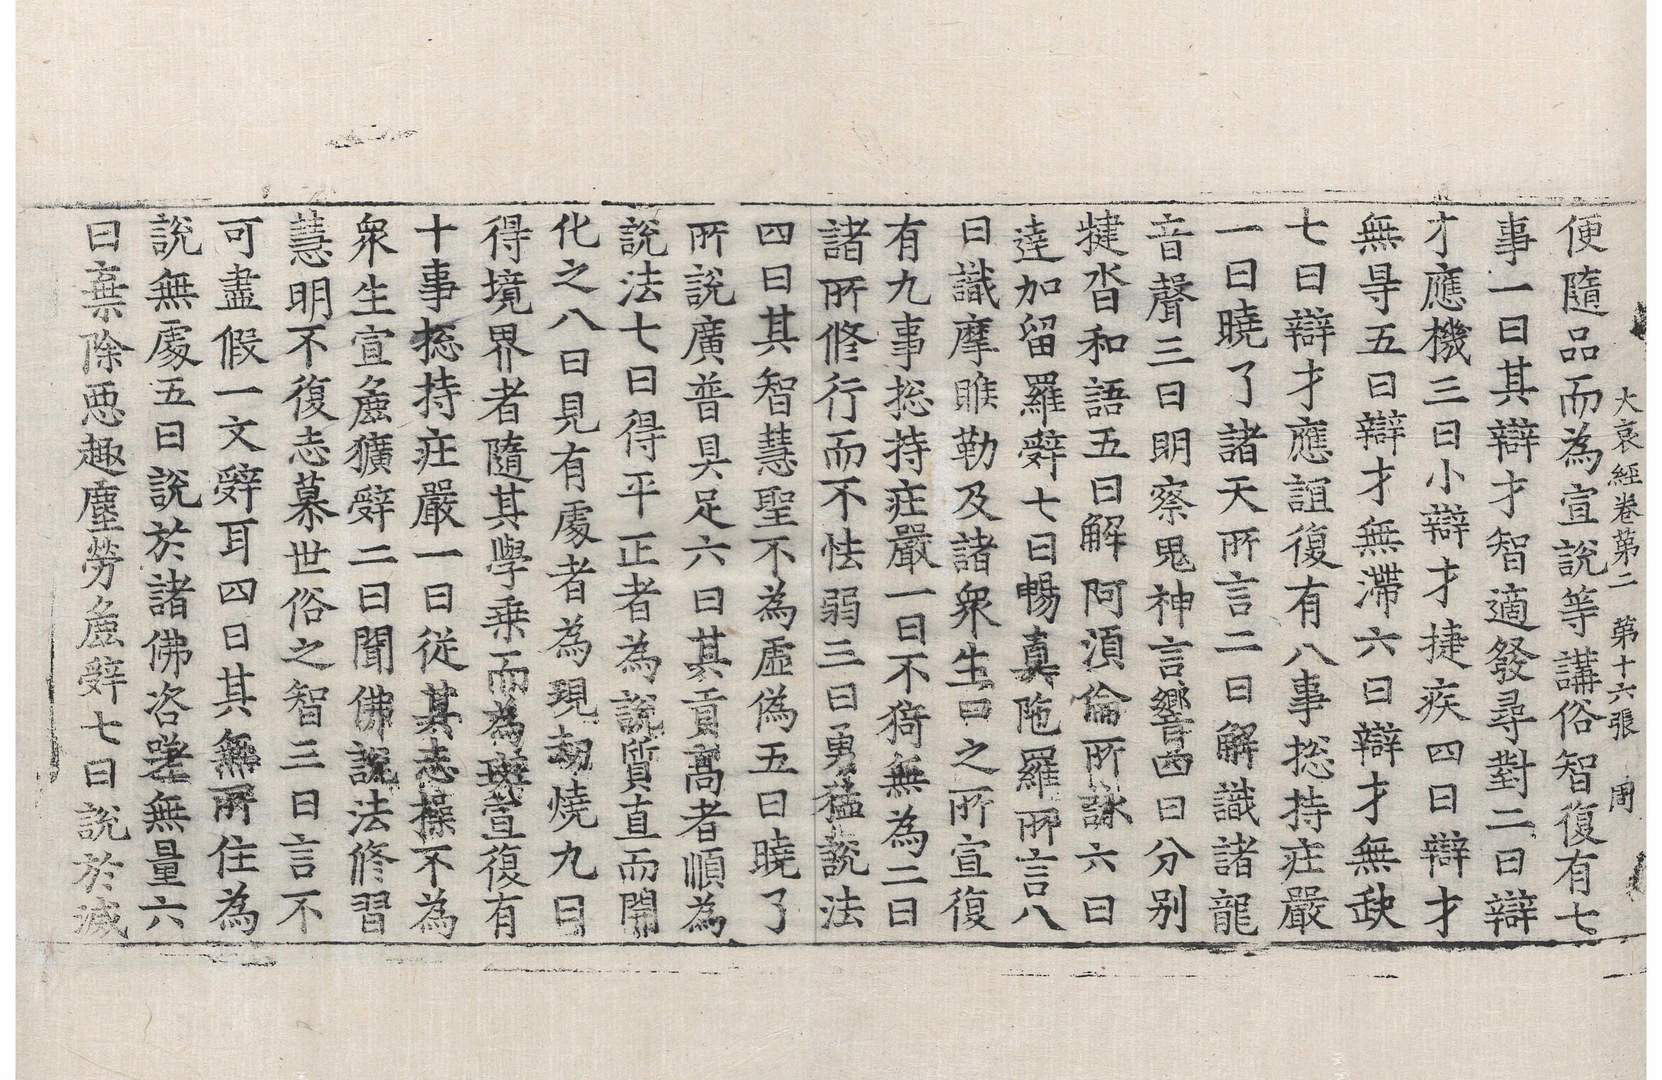 大哀經卷第二　第十六張　周
便隨品而為宣說等講俗智復有七
事一曰其辯才智適發尋對二曰辯
才應機三曰小辯才捷疾四曰辯才
無㝵五曰辯才無滯六曰辯才無䟽
七曰辯才應誼復有八事揔持莊嚴
一曰曉了諸天所言二曰解識諸龍
音聲三曰明察鬼神言響四曰分别
揵沓和語五曰解阿須倫所詠六曰
達加留羅辤七曰暢真陁羅所言八
曰識摩睺勒及諸衆生曰之所宣復
有九事揔持莊嚴一曰不猗無為二曰
諸所修行而不怯弱三曰勇猛說法
四曰其智慧聖不為虛偽五曰曉了
所說廣普具足六曰其貢高者順為
說法七曰得平正者為說質直而開
化之八曰見有處者為現劫燒九曰
得境界者隨其學乗而為班宣復有
十事揔持莊嚴一曰從其志操不為
衆生宣麁獷辤二曰聞佛說法修習
慧明不復志慕世俗之智三曰言不
可盡假一文辤耳四曰其無所住為
說無處五曰說於諸佛咨嗟無量六
曰棄除惡趣塵勞麁辤七曰說於滅